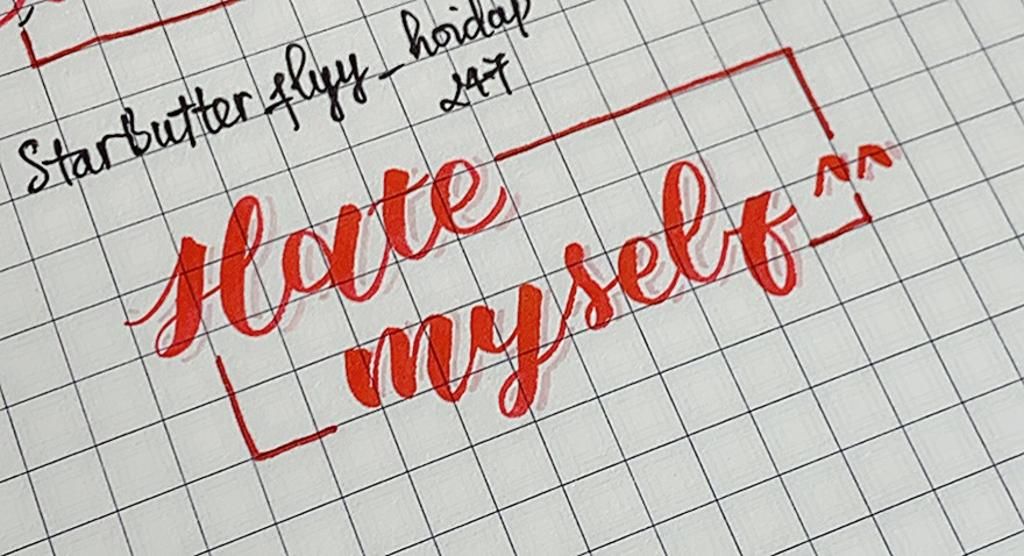 StarButterflyy_hoidap
247
Hate
myself ^^